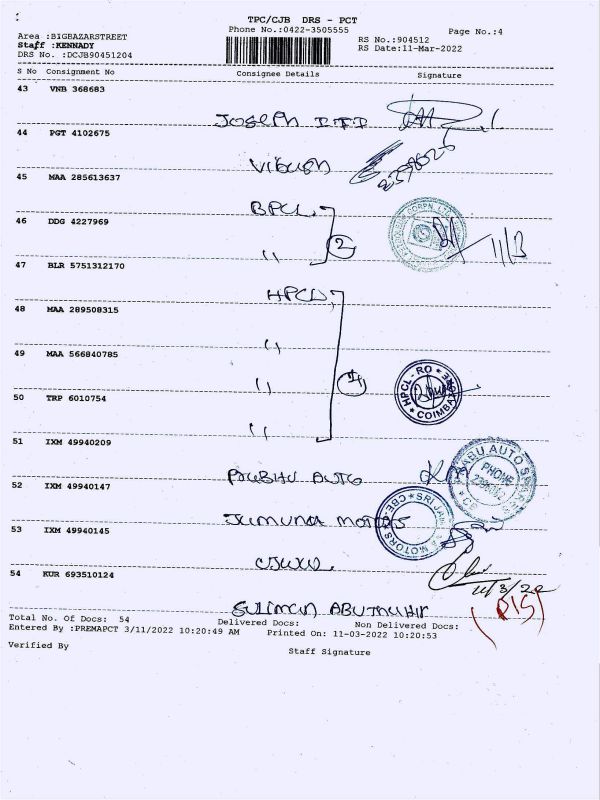 TPC/CJB DRS - PCT
Phone No.:0422-3505555
Page No.:4
Area :BIGBAZARSTREET
Staff :KENNADY
RS No.:904512
DRS No. :DCJB90451204
RS Date:11-Mar-2022
S No Consignment No Consignee Details Signature
43 VNB 368683
Joseph
44 PGT 4102675
45 MAA 285613637
BPCL,
46 DDG 4227969
" 2
11/3
47 BLR 5751312170
HPCL,
48 MAA 289508315
"
49 MAA 566840785
" 4
HPCL - RO
COIMBATORE
50 TRP 6010754
"
51 IXM 49940209
PRABHU AUTO
PRABU AUTO
PHONE
52 IXM 49940147
Jumuna MOTORS
SRI
MOTORS
CBE
53 IXM 49940145
54 KUR 693510124
11/3/22
SULIMAN
Total No. Of Docs: 54 Delivered Docs: Non Delivered Docs:
Entered By :PREMAPCT 3/11/2022 10:20:49 AM Printed On: 11-03-2022 10:20:53
Verified By
Staff Signature